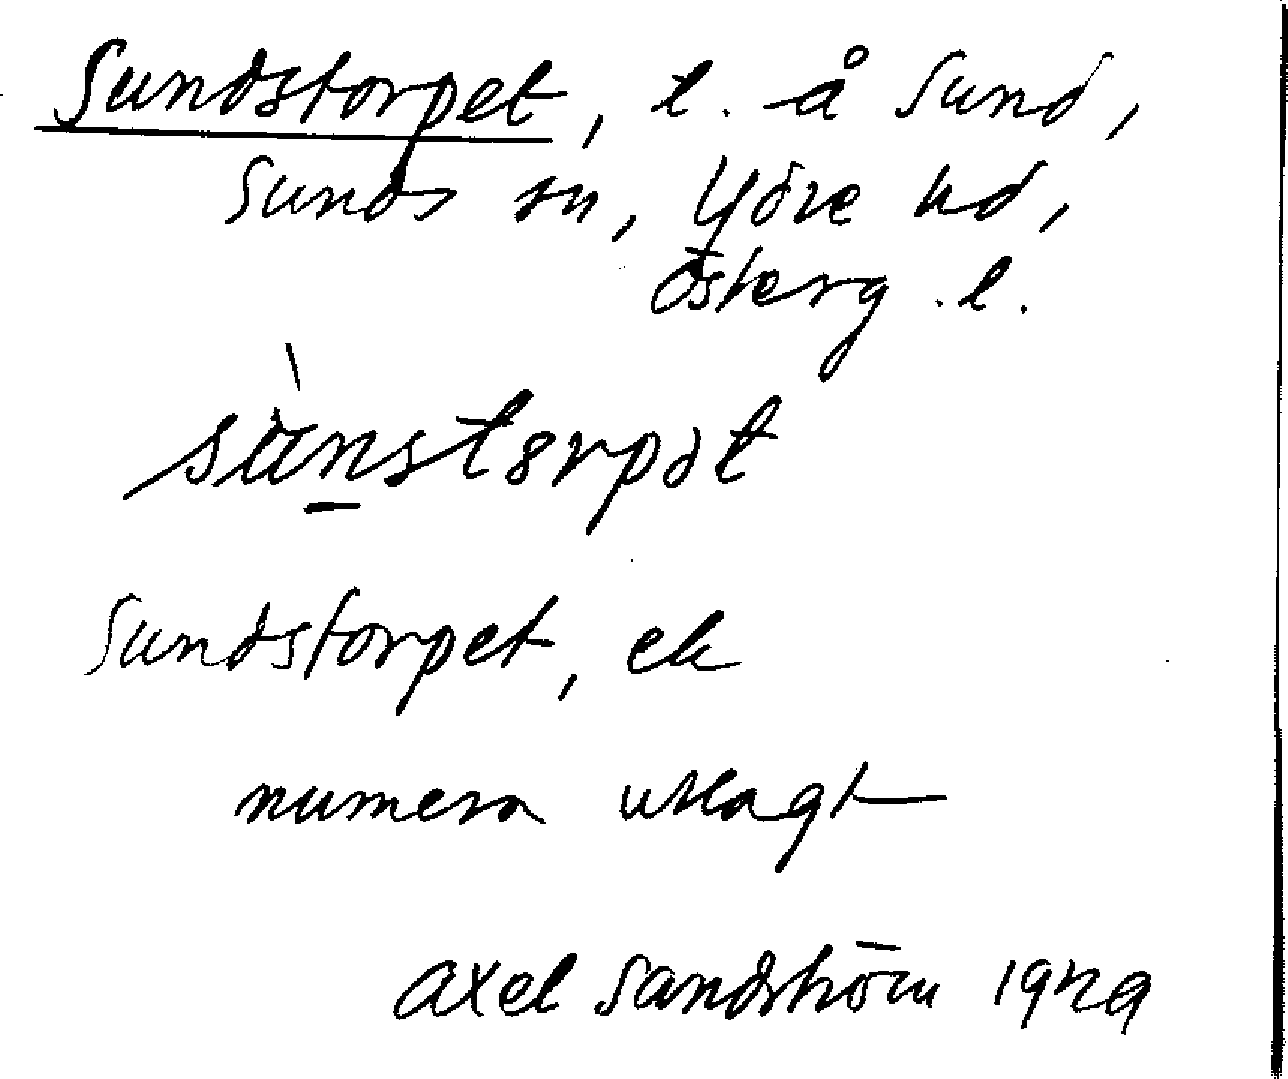 Sundstorpet, l. å Sund,
Sunds sn, Ydre hd,
Österg. l.
sùnstorpət
Sundstorpet, ek
numera utlagt
Axel Sandström 1929